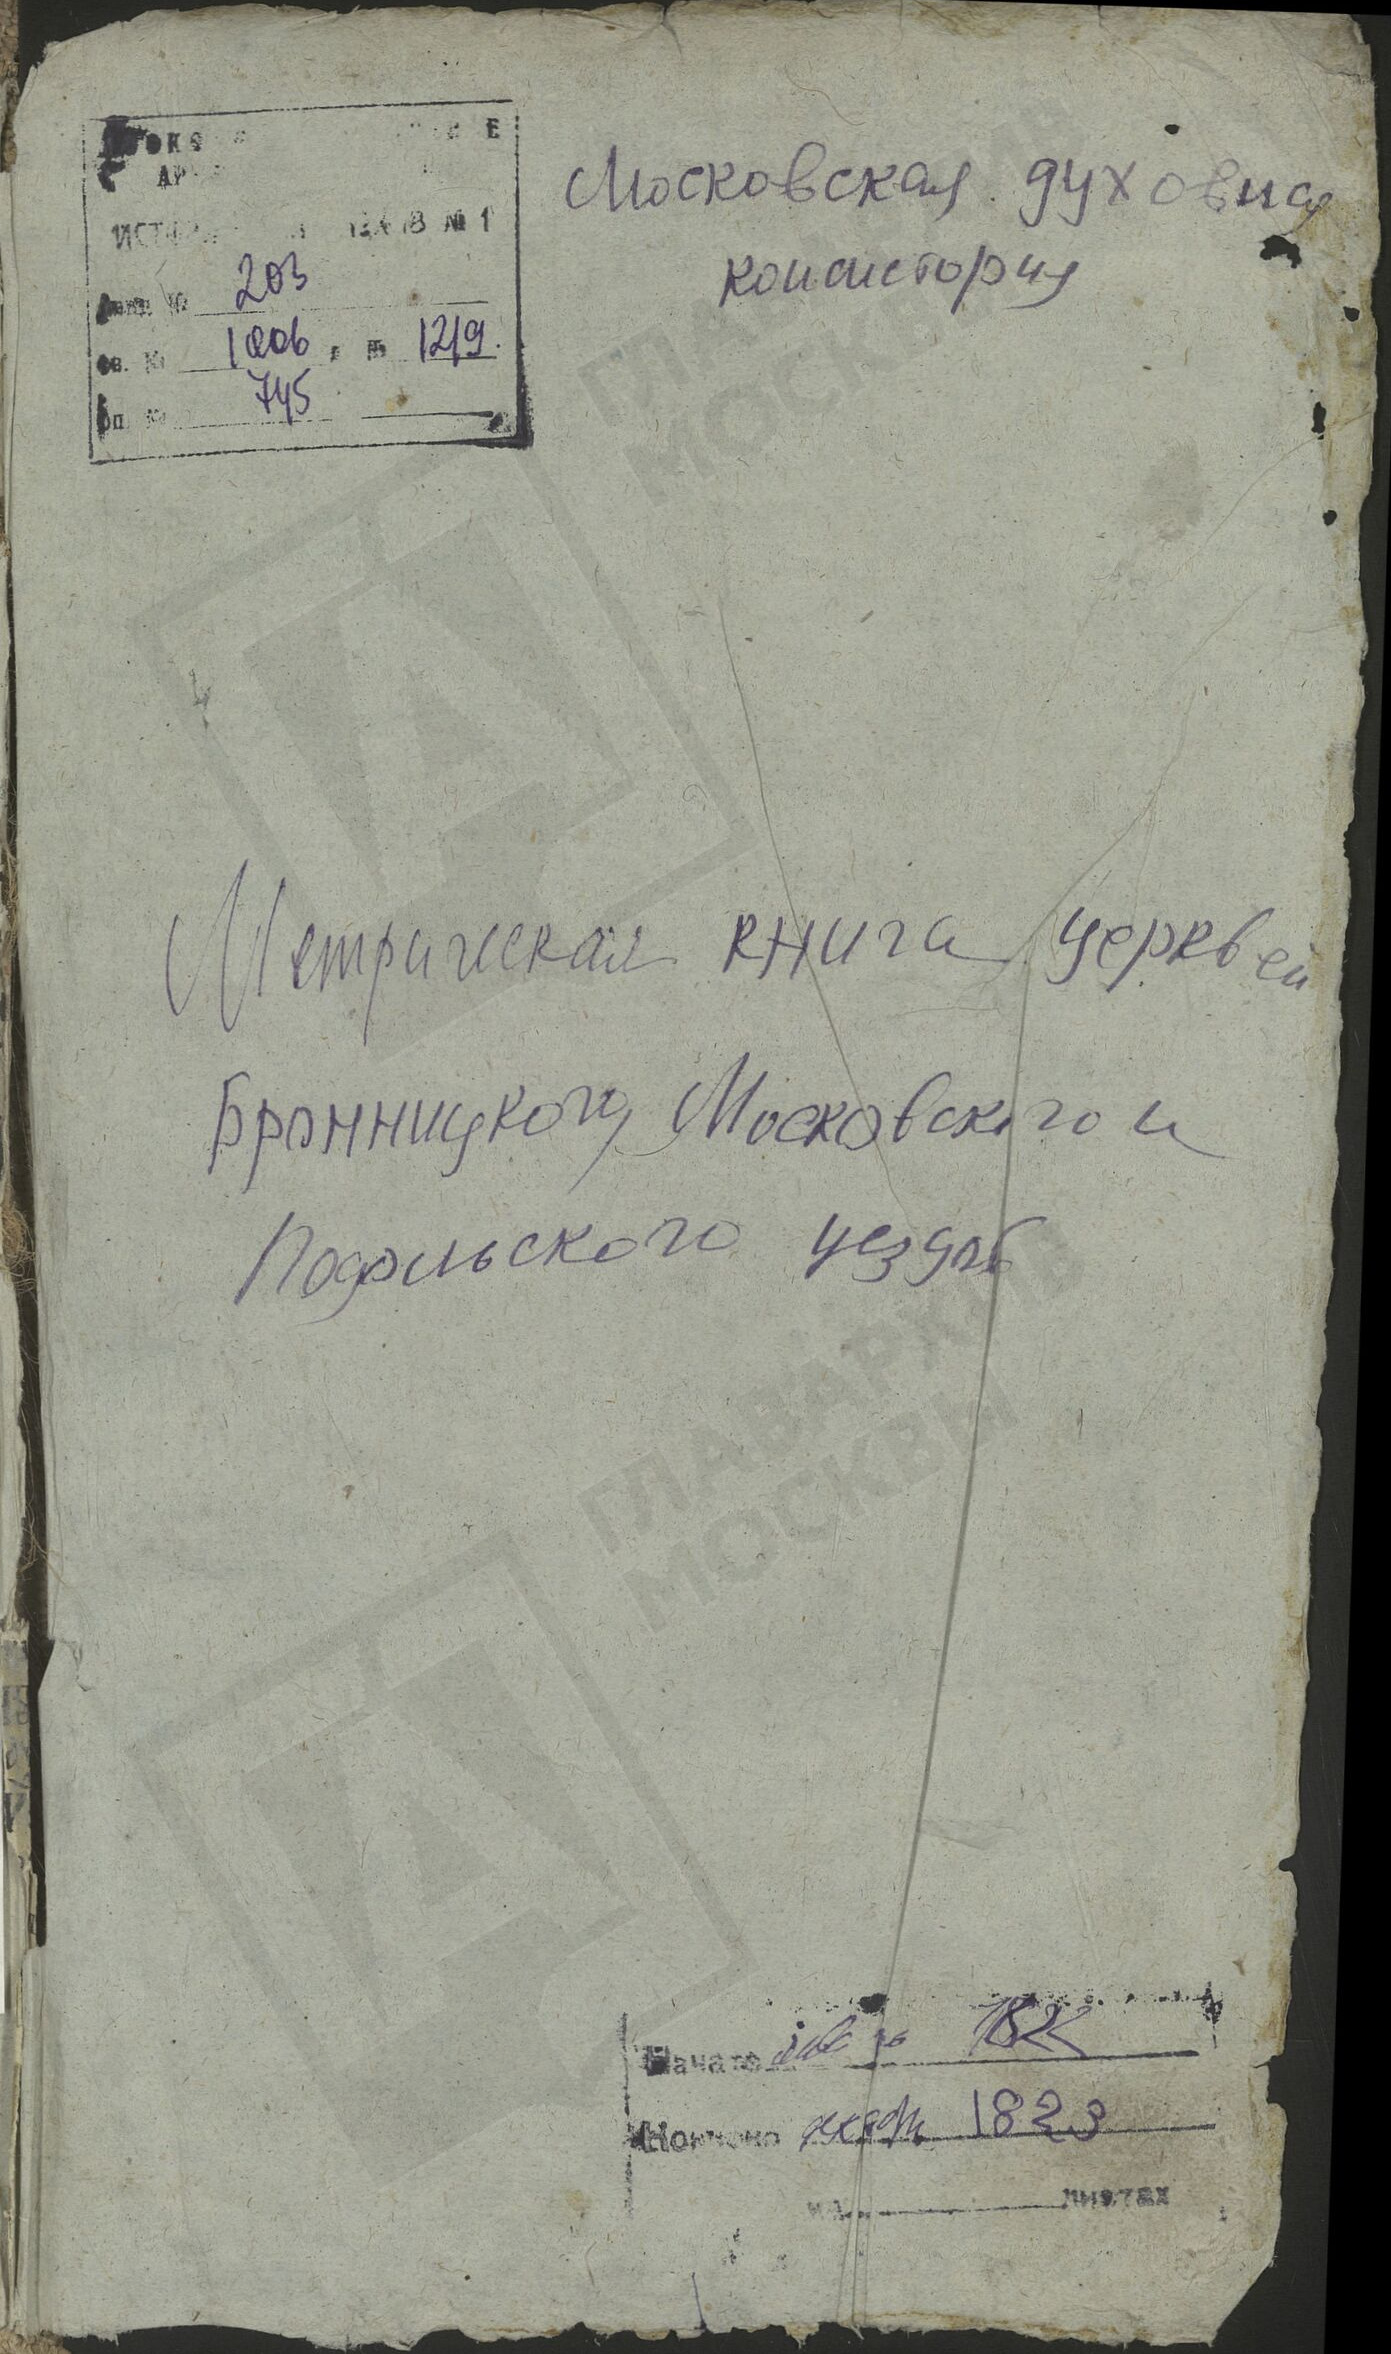 Московская духовная
консистория
№ 1
203
1006 1219.
745
Метрическая книга церквей
Бронницкого, Московского и
Подольского уездов
Начато
Кончено 1823
на листах
ГЛАВАРХИВ
МОСКВЫ
ГЛАВАРХИВ
МОСКВЫ